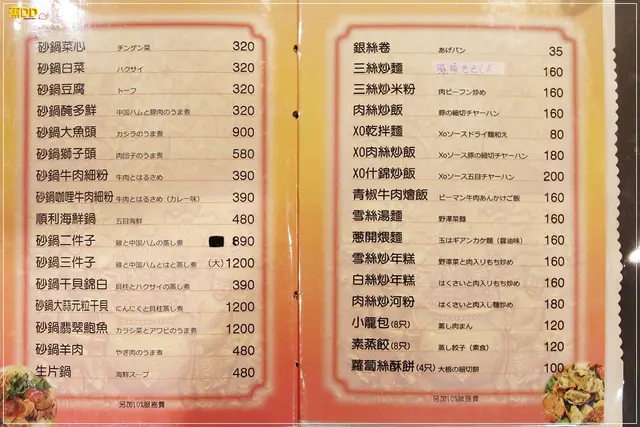 砂鍋菜心 チンゲン菜 320
砂鍋白菜 ハクサイ 320
砂鍋豆腐 トーフ 320
砂鍋醃多鮮 中国ハムと豚肉のうま煮 320
砂鍋大魚頭 カシラのうま煮 900
砂鍋獅子頭 肉団子のうま煮 580
砂鍋牛肉細粉 牛肉とはるさめ 390
砂鍋咖哩牛肉細粉 牛肉とはるさめ (カレー味) 390
順利海鮮鍋 五目海鮮 480
砂鍋二件子 雞と中国ハムの蒸し煮 890
砂鍋三件子 雞と中国ハムとはと蒸し煮 (大) 1200
砂鍋干貝錦白 貝柱とハクサイの蒸し煮 390
砂鍋大蒜元粒干貝 にんにくと貝柱蒸し煮 1200
砂鍋翡翠鮑魚 カラシ菜とアワビのうま煮 1200
砂鍋羊肉 やぎ肉のうま煮 480
生片鍋 海鮮スープ 480
另加10%服務費
銀絲卷 あげパン 35
三絲炒麵 160
三絲炒米粉 肉ビーフン炒め 160
肉絲炒飯 豚の細切チャーハン 160
XO乾拌麵 Xoソースドライ麵和え 80
XO肉絲炒飯 Xoソース豚の細切チャーハン 180
XO什錦炒飯 Xoソース五目チャーハン 200
青椒牛肉燴飯 ピーマン牛肉あんかけご飯 160
雪絲湯麵 野澤菜麵 160
蔥開煨麵 玉はギアンカケ麵 (醤油味) 160
雪絲炒年糕 野澤菜と肉入りもち炒め 160
白絲炒年糕 はくさいと肉入りもち炒め 160
肉絲炒河粉 はくさいと肉入し麵炒め 180
小籠包 (8只) 蒸し肉まん 120
素蒸餃 (8只) 蒸し餃子 (素食) 120
蘿蔔絲酥餅 (4只) 大根の細切餅 100
另加10%服務費